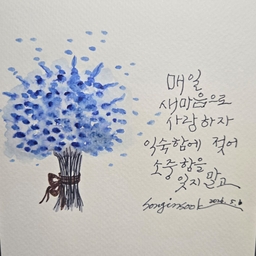 매일
새마음으로
사랑하자
익숙함에 젖어
소중함을
잊지 말고